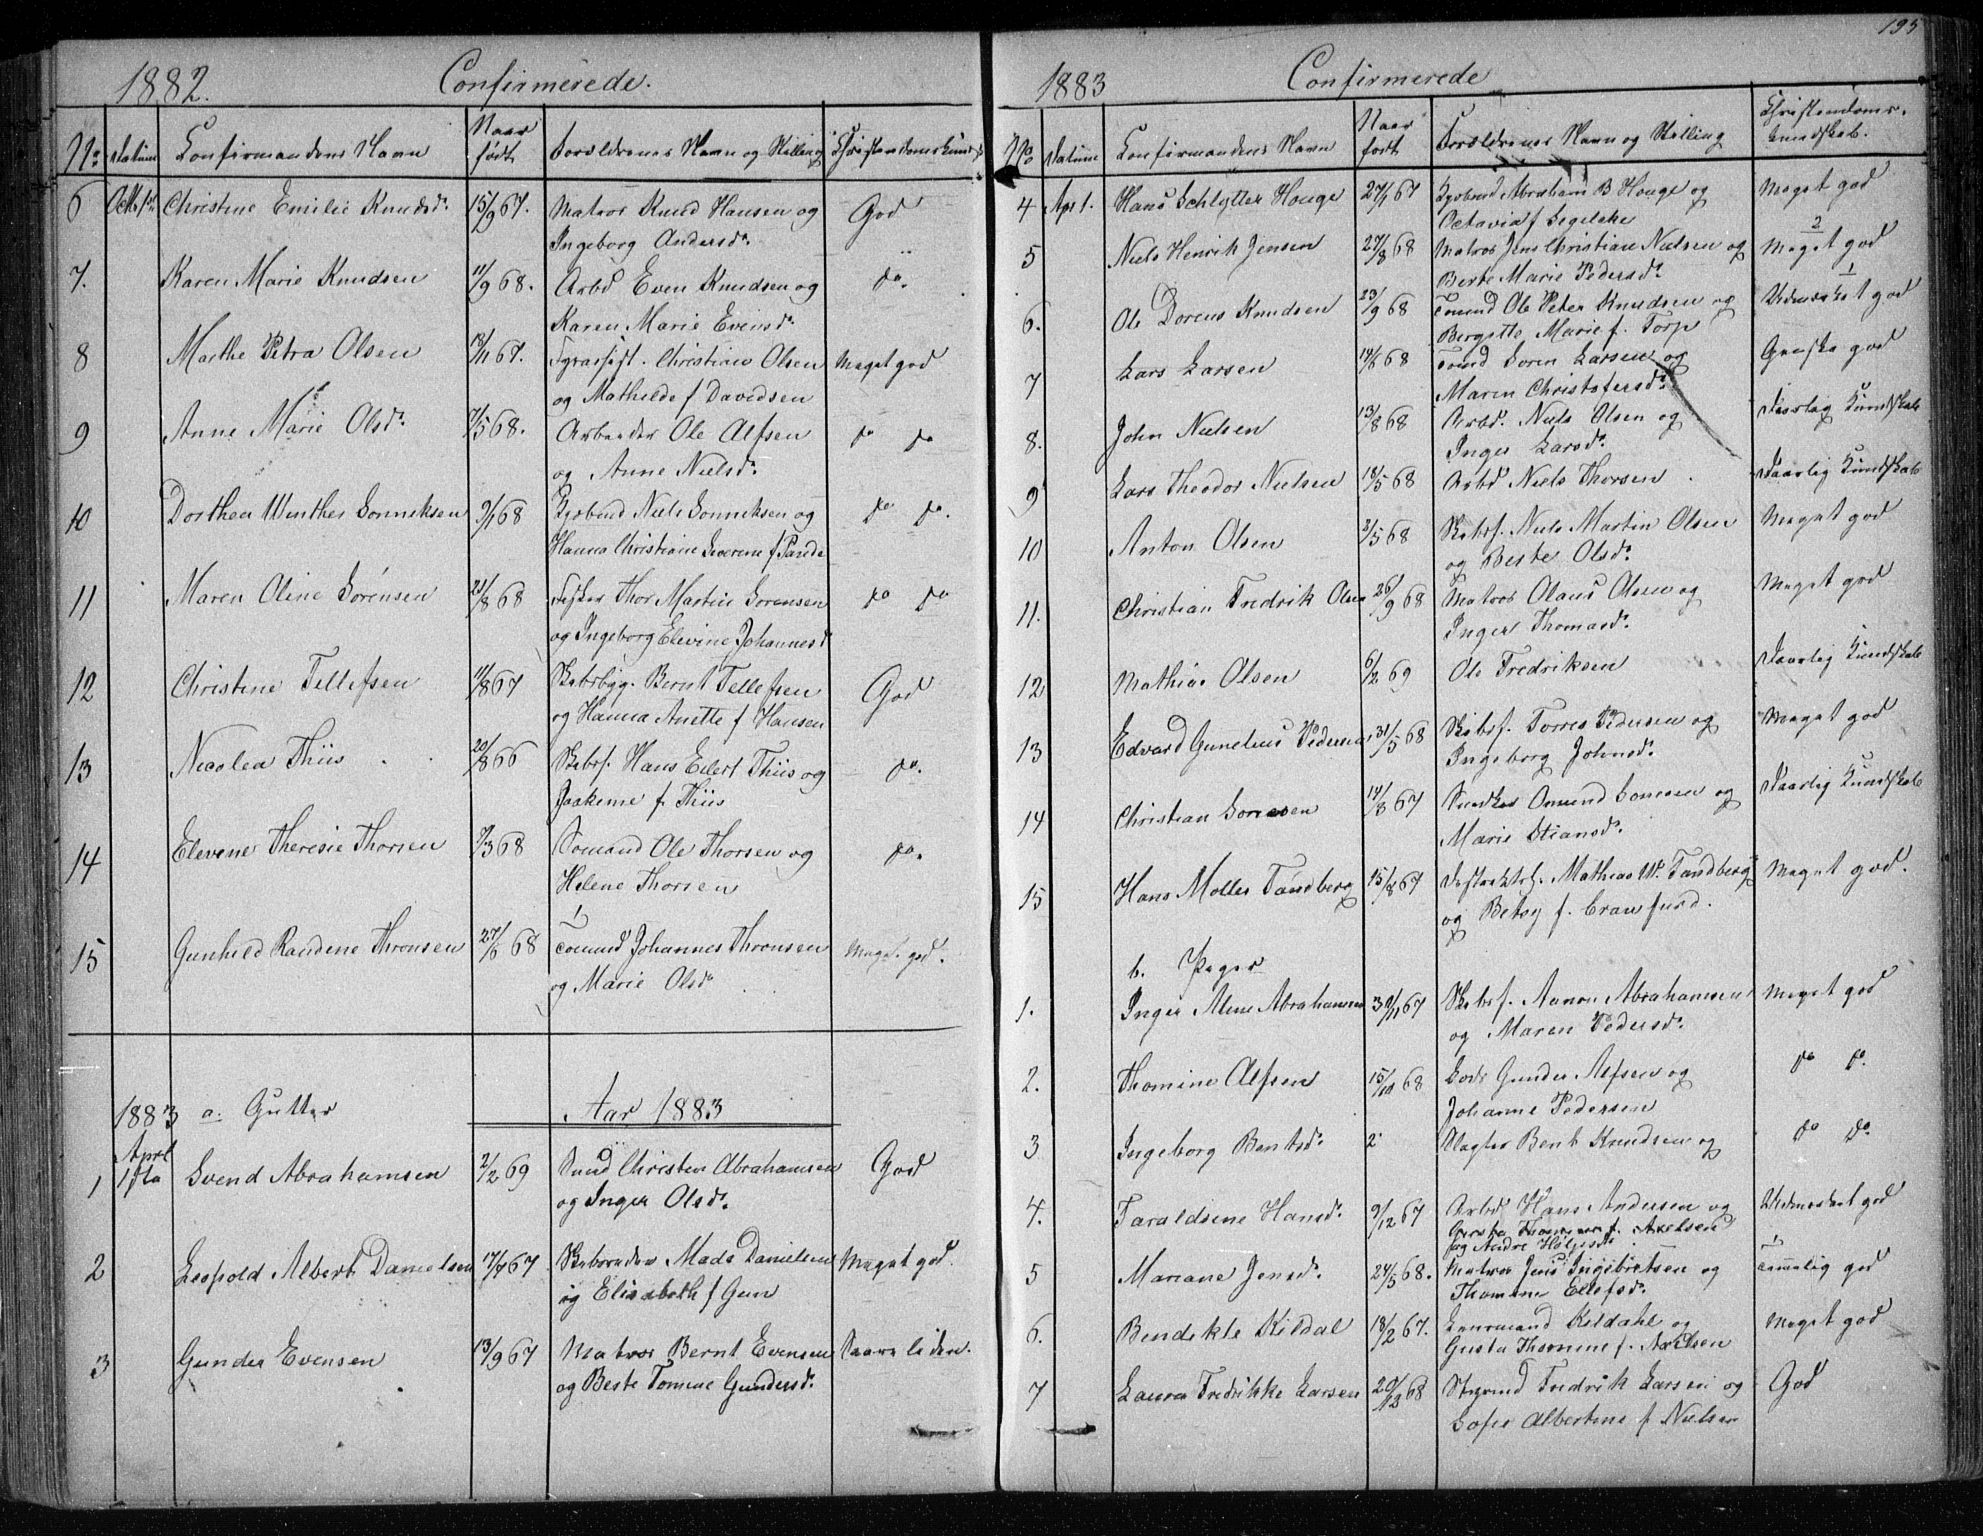 1882. Confirmerede.
No Datum Confirmandens Navn Naar født Forældrenes Navn og Stilling Christendomskundsk
6 Octb. Christine Emilie Knudsdr 15/9 67. Matros Knud Hansen og God
Ingeborg Andersdr
7. Karen Marie Knudsen 11/9 68. Arbd Even Knudsen og do.
Karen Marie Evensdr
8 Marthe Petra Olsen 18/11 67. Christian Olsen Meget god
og Mathilde f Davidsen
9 Anne Marie Olsdr 7/5 68. Arbeider Ole Alfsen do do
og Anne Nielsdr
10 Dorthea Winther Sonniksen 9/1 68 Niels Sonniksen og do do.
Hanna Christiane Severine f
11 Maren Oline Sørensen 21/8 68 Fisker Thor Martin Sørensen do do
og Ingeborg Elevine Johannesd
12 Christine Tellefsen 11/8 67 Skibsbyg. Bernt Tellefsen God
og Hanna Anette f Hansen
13 Nicolea Thiis 20/8 66 Skibsf. Hans Eilert Thiis og do.
Joakime f. Thiis
14 Elevene Theresie Thorsen 7/3 68 Sømand Ole Thorsen og do.
Helene Thorsen
15 Gunhild Randine Thronsen 27/6 68 Sømand Johannes Thronsen Meget god.
og Marie Olsdr
1883 a. Gutter Aar 1883
Aprl
1 1ste Svend Abrahamsen 2/2 69 Christen Abrahamsen God
og Inger Olsdr.
2 Leopold Albert Danielsen 17/4 67 Mads Danielsen Meget god.
og Elisabeth f Gun
3 Gunder Evensen 13/9 67 Matros Bernt Evensen
og Beste Tomine Gundersdr.
195
1883 Confirmerede
No Datum Confirmandens Navn Naar født Forældrenes Navn og Stilling Christendoms-kundskab.
4 Apr 1. Hans Schlytter Houge 27/1 67 Abraham B Houge og Meget god
Octavia f Segelcke
2
5 Niels Henrik Jensen 27/8 68 Matros Jens Christian Nielsen og Meget god
Berte Marie Pedersdr. 1
6. Ole Dorens Knudsen 23/9 68 Sømd Ole Peter Knudsen og Udmærket god
Bergitte Marie f. Torp
7 Lars Larsen 14/6 68 Sømd Søren Larsen og Ganske god
Maren Christofersdr.
8. John Nielsen 13/8 68 Arbd. Niels Olsen og Daarlig Kundskab
Inger Larsdr.
9 Lars Theodor Nielsen 18/5 68 Arbd Niels Thorsen Daarlig Kundskab
10 Anton Olsen 2/5 68 Skibsf. Niels Martin Olsen Meget god
og Beste Olsdr.
11. Christian Fredrik Olsen 26/9 68 Matros Olaus Olsen og Meget god
Inger Thomasdr.
12 Mathias Olsen 6/2 69 Ole Fredriksen Daarlig Kundskab
13 Edvard Gunelius Pedersen 31/5 68 Skibsf. Torres Pedersen og Meget god
Ingeborg Johnsdr.
14 Christian Sørensen 14/8 67 Omund Sørensen og Daarlig Kundskab
Marie Stiansdr.
15 Hans Møller Tandberg 15/8 67 Mathias W. Tandberg Meget god.
og Betsy f. Crawfurd.
b. Piger
1. Inger Alene Abrahamsen 30/11 67 Skibsf. Aanon Abrahamsen Meget god
og Maren Pedersdr.
2. Thomine Alfsen 15/10 68 Lods Gunder Alfsen og do do.
Johanne Pedersen
3 Ingeborg Bentsdr. 2 Slagter Bent Knudsen og do do.
4. Taraldsine Hansdr. 9/12 67 Arbd Hans Andersen og Udmærket god
f. Axelsen
og Andre
5 Mariane Jensdr. 24/5 68. Matros Jens Ingebretsen og temmelig god
Thomine Ellefsdr.
6. Bendikte Kildal 18/2 67. Lensmand Kildahl og Meget god
Gusta Thomine f. Axelsen
7 Laura Fredrikke Larsen 20/12 68 Fredrik Larsen og God
Sofie Albertine f Nielsen